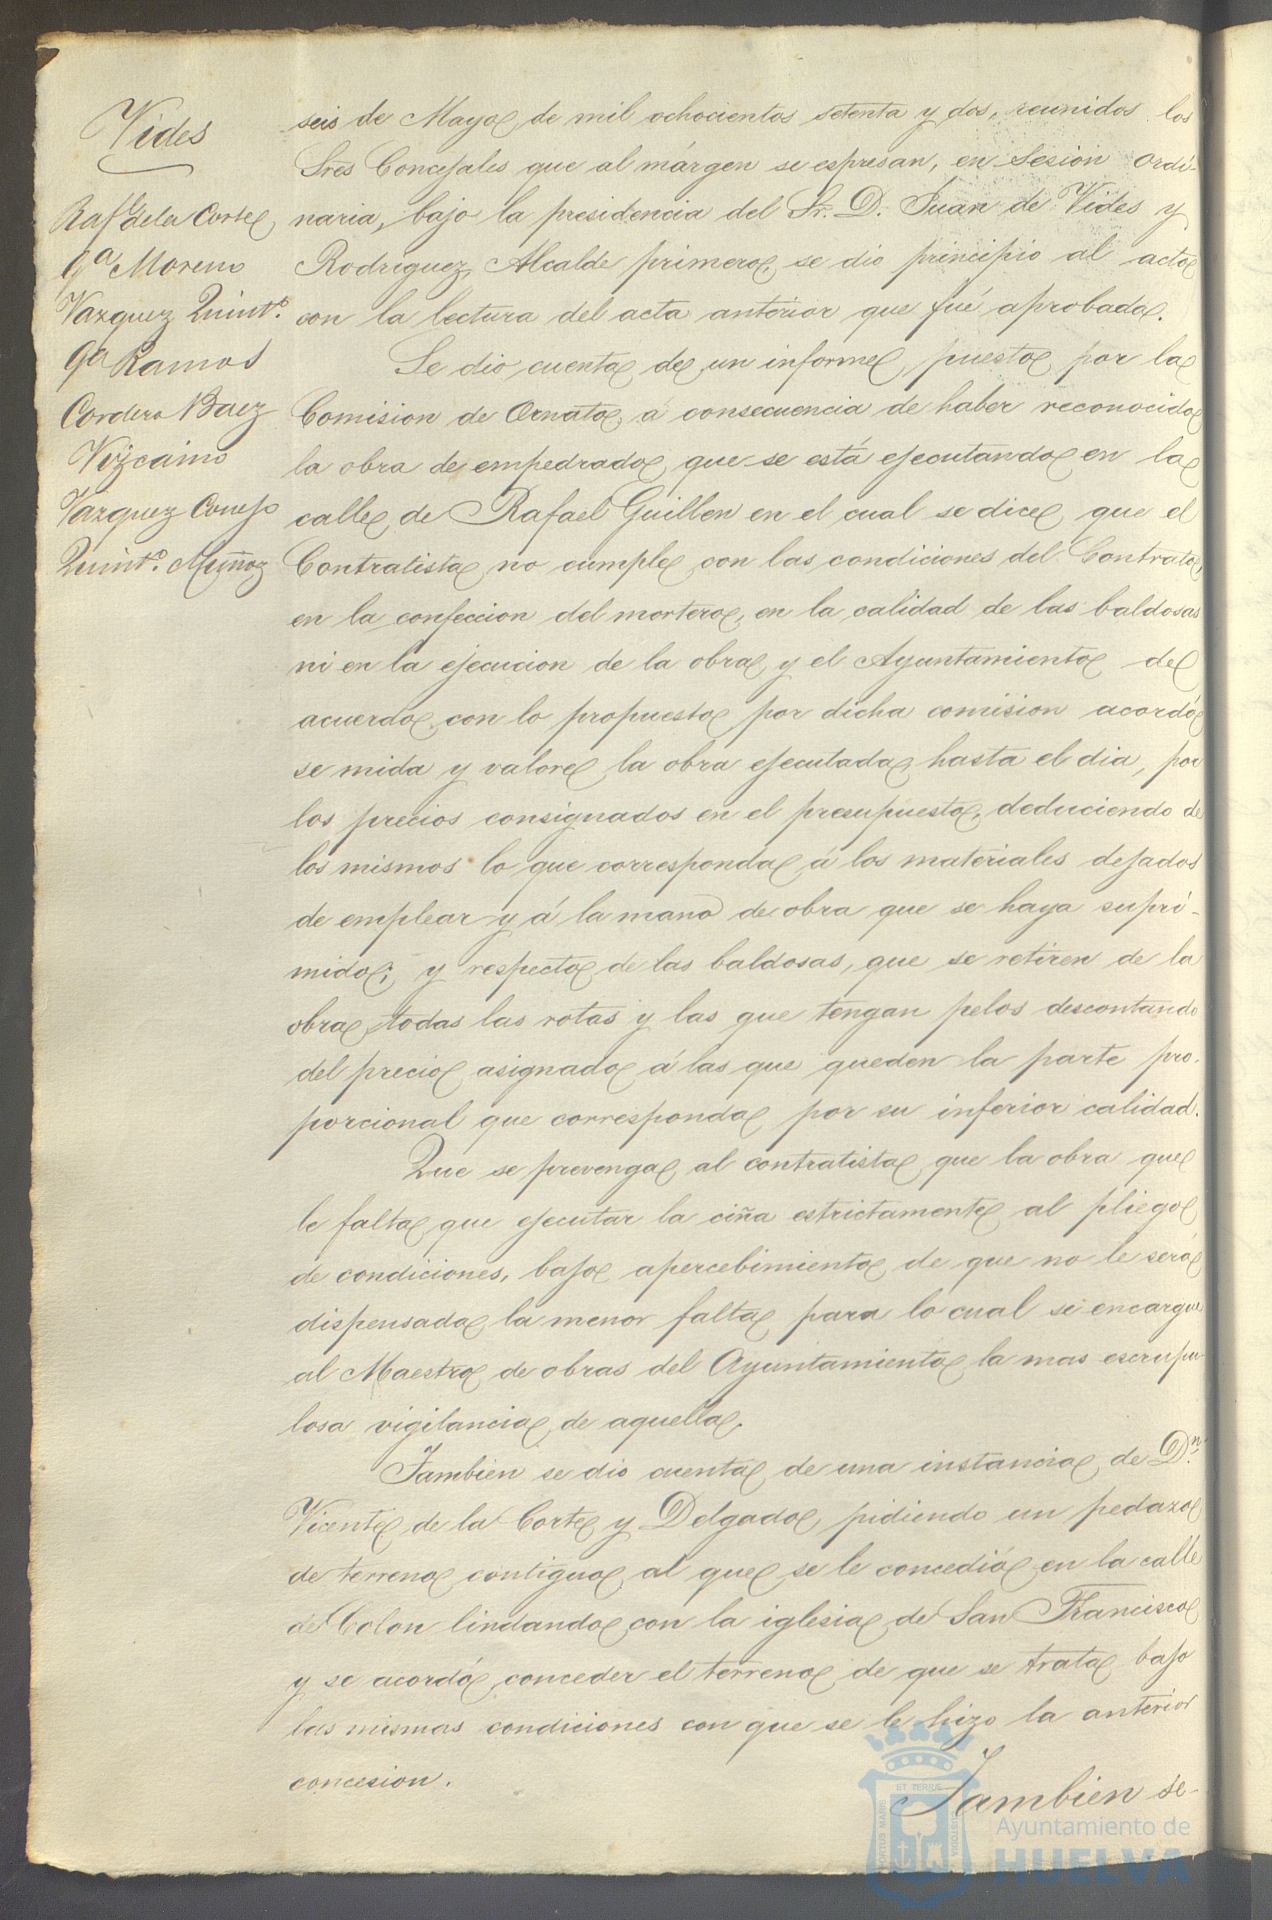 Vides
Raf.l de la Corte
Ga Moreno
Vazquez Quint.o
Ga Ramos
Cordero Baez
Vizcaino
Vazquez Conejo
Quint.o Muñoz
seis de Mayo, de mil ochocientos setenta y dos, reunidos los
Sres Concejales que al márgen se espresan, en Sesion ordi-
naria, bajo la presidencia del Sr. D. Juan de Vides y
Rodriguez, Alcalde primero, se dio principio al acto
con la lectura del acta anterior que fué aprobada.
Se dio cuenta de un informe, puesto por la
Comision de Ornato, a consecuencia de haber reconocido
la obra de empedrado, que se está ejecutando en la
calle de Rafael Guillen en el cual se dice, que el
Contratista no cumple con las condiciones del Contrato,
en la confeccion del mortero, en la calidad de las baldosas
ni en la ejecucion de la obra, y el Ayuntamiento de
acuerdo, con lo propuesto por dicha comision acordó
se mida y valore la obra ejecutada, hasta el dia, por
los precios consignados en el presupuesto, deduciendo de
los mismos lo que corresponda á los materiales dejados
de emplear y á la mano de obra que se haya supri-
mido; y respecto de las baldosas, que se retiren de la
obra, todas las rotas y las que tengan pelos descontando
del precio asignado á las que queden la parte pro-
porcional que corresponda por su inferior calidad.
Que se prevenga al contratista que la obra que
le falta que ejecutar la ciña estrictamente al pliego
de condiciones, bajo apercebimiento de que no le será
dispensada la menor falta para lo cual se encargue
al Maestro de obras del Ayuntamiento la mas escrupu-
losa vigilancia de aquella.
Tambien se dio cuenta de una instancia de D.n
Vicente de la Corte y Delgado, pidiendo un pedazo
de terreno contiguo al que se le concedió en la calle
de Colon lindando con la iglesia de San Francisco
y se acordó conceder el terreno de que se trata bajo
las mismas condiciones con que se le hizo la anterior
concesion.
Tambien se-
ET TERRE
PORTUS MARIS
CUSTODIA
Ayuntamiento de
HUELVA